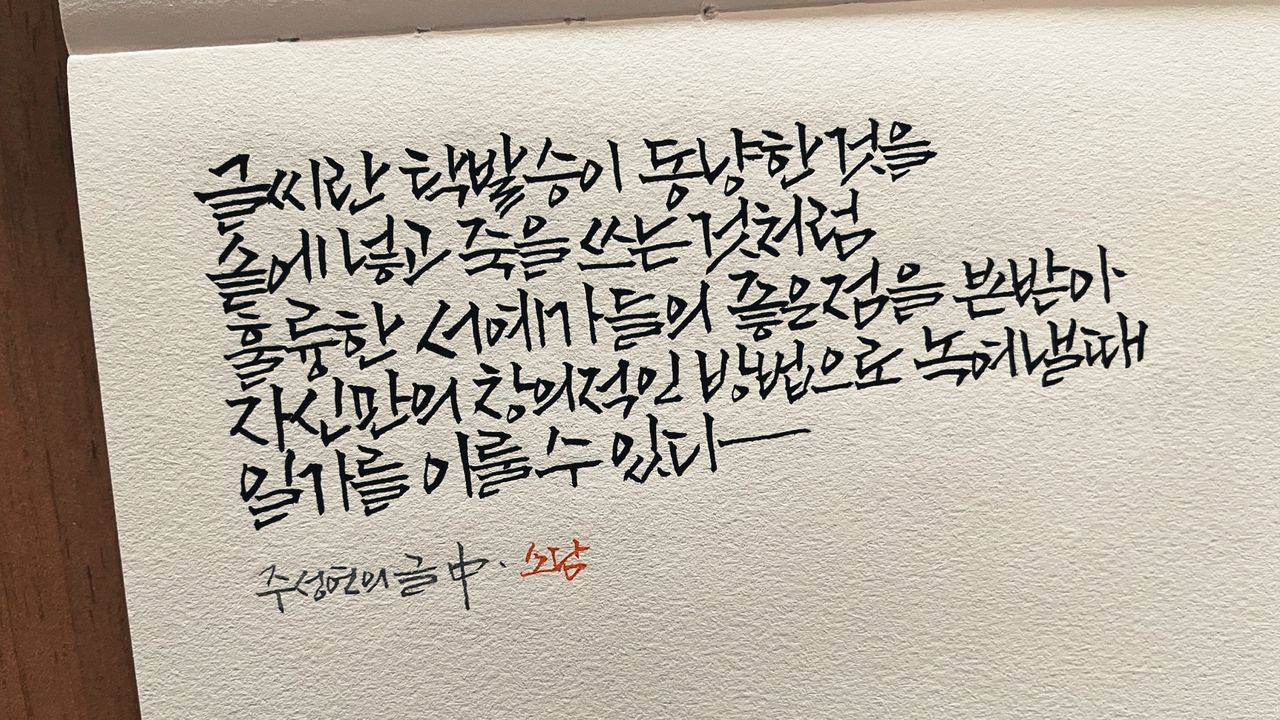 글씨란 탁발승이 동냥한것을
솥에 넣고 죽을 쓰는것처럼
훌륭한 서예가들의 좋은점을 본받아
자신만의 창의적인 방법으로 녹여낼때
일가를 이룰 수 있다
주성헌의 글 中. 소담